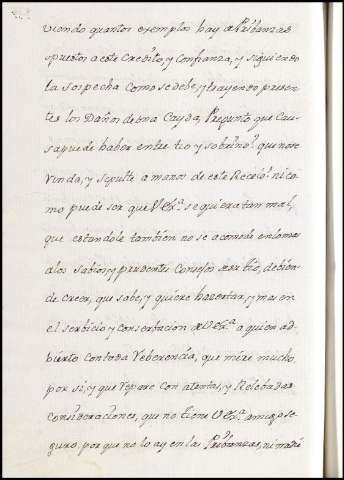 viendo quantos exemplos hay de Pribanzas
opuestos a este Credito, y Confianza, y siguiendo
la sospecha como se debe, y trayendo presen-
tes los Daños de una Cayda, Pregunto que Cau-
sa puede haber entre tio y sobrino que no se
rinda, y sepulte a manos de este Recelo? ni co-
mo puede ser que V Exª. se quiera tan mal,
que estandole tambien no se acomode en lomar
a los sabios, y prudentes Consejos de un tio, debien-
do Creer, que sabe, y quiere hazertar, y mas en
el serbicio y conserbacion de V Exª. a quien ad-
bierto con toda Reberencia, que mire mucho
por si, y que repare con atentas, y Relebadas
consideraciones, que no tiene V Exª. amigo se-
guro, porque no lo ay en las Pribanzas, ni nadie